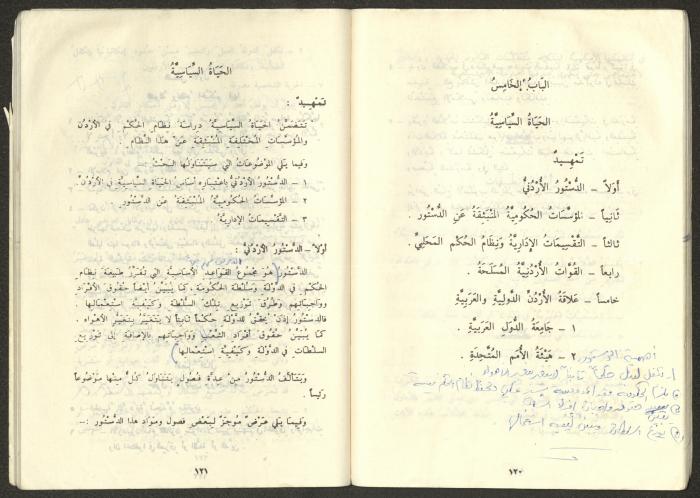 البَابُ الخَامِسُ
الحَيَاةُ السِّيَاسِيَّةُ
تَمْهِيدٌ
أوّلاً – الدُّسْتُورُ الأُرْدُنِّيُّ
ثَانِياً – المُؤَسَّسَاتُ الحُكُومِيَّةُ المُنْبَثِقَةُ عَنِ الدُّسْتُورِ .
ثالثاً – التَّقْسِيمَاتُ الإدَارِيَّةُ وَنِظَامُ الحُكْمِ المَحَلِّيِّ .
رابعاً – القُوَّاتُ الأُرْدُنِيَّةُ المُسَلَّحَةُ .
خامساً – عَلاقَةُ الأُرْدُنِّ الدَّوْلِيَّةِ والعَرَبِيَّةِ
١ – جَامِعَةُ الدُّوَلِ العَرَبِيَّةِ .
٢ – هَيْئَةُ الأُمَمِ المُتَّحِدَةِ .
أهمية الدستور
١٢٠
الحَيَاةُ السِّيَاسِيَّةُ
تَمْهِيدٌ :
تَتَضَمَّنُ الحَيَاةُ السِّيَاسِيَّةُ دِرَاسَةَ نِظَامِ الحُكْمِ في الأرْدُنِّ
والمُؤَسَّسَاتِ المُخْتَلِفَةِ المُنْبَثِقَةِ عَنْ هذَا النِّظَامِ .
وَفِيمَا يَلِي المَوْضُوعَاتُ الَّتِي سَيَتَنَاوَلُهَا البَحْثُ :
١ – الدُّسْتُورُ الأرْدُنِّيُّ بِاعْتِبَارِهِ أسَاسَ الحَيَاةِ السِّيَاسِيَّةِ في الأرْدُنِّ .
٢ – المُؤسَّسَاتُ الحُكُومِيَّةُ المُنْبَثِقَةُ عَنِ الدُّسْتُورِ
٣ – التَّقْسِيمَاتُ الإدَارِيَّةُ
أوّلاً – الدُّسْتُورُ الأرْدُنِّيُّ :
الدُّسْتُورُ هُوَ مَجْمُوعُ القَوَاعِدِ الأسَاسِيَّةِ الَّتِي تُقَرِّرُ طَبِيعَةَ نِظَامِ
الحُكْمِ في الدَّوْلَةِ وَسُلْطَةَ الحُكُومَةِ ، كَمَا يُبَيِّنُ أيْضاً حُقُوقَ الأفْرَادِ
وَوَاجِبَاتِهِمْ وَطُرُقَ تَوْزِيعِ تِلْكَ السُّلْطَةِ وَكَيْفِيَّةَ اسْتِعْمَالِهَا .
فالدُّسْتُورُ إذَنْ يُحَقِّقُ للدَّوْلَةِ حُكْماً ثَابِتاً لا يَتَغَيَّرُ بِتَغَيُّرِ الأهْوَاءِ .
كَمَا يُبَيِّنُ حُقُوقَ أفْرَادِ الشَّعْبِ وَوَاجِبَاتِهِمْ بالإضَافَةِ إلى تَوْزِيعِ
السُّلُطَاتِ في الدَّوْلَةِ وَكَيْفِيَّةِ اسْتِعْمَالِهَا
وَيَتَألَّفُ الدُّسْتُورُ مِنْ عِدَّةِ فُصُولٍ يَتَنَاوَلُ كُلٌّ مِنْهَا مَوْضُوعاً
رَئِيساً .
وَفِيمَا يَلِي عَرْضٌ مُوجَزٌ لِبَعْضِ فُصُولِ وَمَوَادِّ هذَا الدُّسْتُورِ :–
١٢١